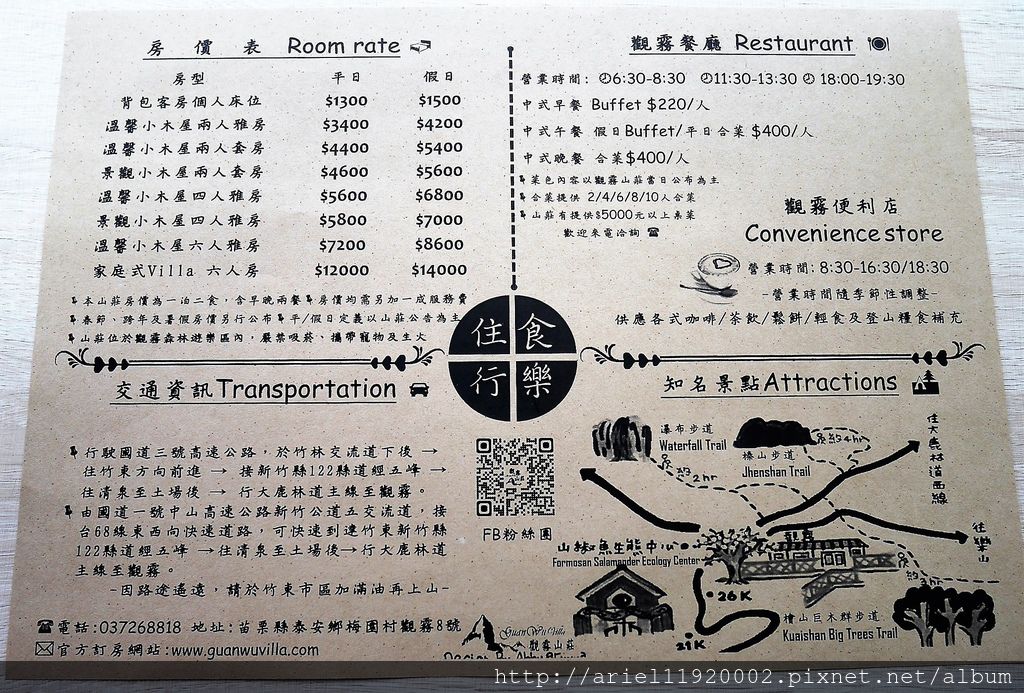 房價表 Room rate
房型 平日 假日
背包客房個人床位 $1300 $1500
溫馨小木屋兩人雅房 $3400 $4200
溫馨小木屋兩人套房 $4400 $5400
景觀小木屋兩人套房 $4600 $5600
溫馨小木屋四人雅房 $5600 $6800
景觀小木屋四人雅房 $5800 $7000
溫馨小木屋六人雅房 $7200 $8600
家庭式Villa 六人房 $12000 $14000
本山莊房價為一泊二食,含早晚兩餐 房價均需另加一成服務費
春節、跨年及暑假房價另行公布 平/假日定義以山莊公告為主
山莊位於觀霧森林遊樂區內,嚴禁吸菸、攜帶寵物及生火
觀霧餐廳 Restaurant
營業時間: 6:30-8:30 11:30-13:30 18:00-19:30
中式早餐 Buffet $220/人
中式午餐 假日Buffet/平日合菜 $400/人
中式晚餐 合菜$400/人
菜色內容以觀霧山莊當日公布為主
合菜提供 2/4/6/8/10人合菜
山莊有提供$5000元以上桌菜
歡迎來電洽詢
觀霧便利店
Convenience store
營業時間: 8:30-16:30/18:30
-營業時間隨季節性調整-
供應各式咖啡/茶飲/鬆餅/輕食及登山糧食補充
住 食
行 樂
交通資訊Transportation
行駛國道三號高速公路,於竹林交流道下後 →
往竹東方向前進 → 接新竹縣122縣道經五峰 →
往清泉至土場後 → 行大鹿林道主線至觀霧。
由國道一號中山高速公路新竹公道五交流道,接
台68線東西向快速道路,可快速到達竹東新竹縣
122縣道經五峰 →往清泉至土場後→行大鹿林道
主線至觀霧。
-因路途遙遠,請於竹東市區加滿油再上山-
電話:037268818 地址:苗栗縣泰安鄉梅園村觀霧8號
官方訂房網站:www.guanwuvilla.com
FB粉絲團
GuanWu Villa
觀霧山莊
知名景點Attractions
瀑布步道
Waterfall Trail
榛山步道
Jhenshan Trail
往大鹿林道西線
往樂山
觀霧
山椒魚生態中心
Formosan Salamander Ecology Center
26K
21K
檜山巨木群步道
Kuaishan Big Trees Trail
http://ariel11920002.pixnet.net/album